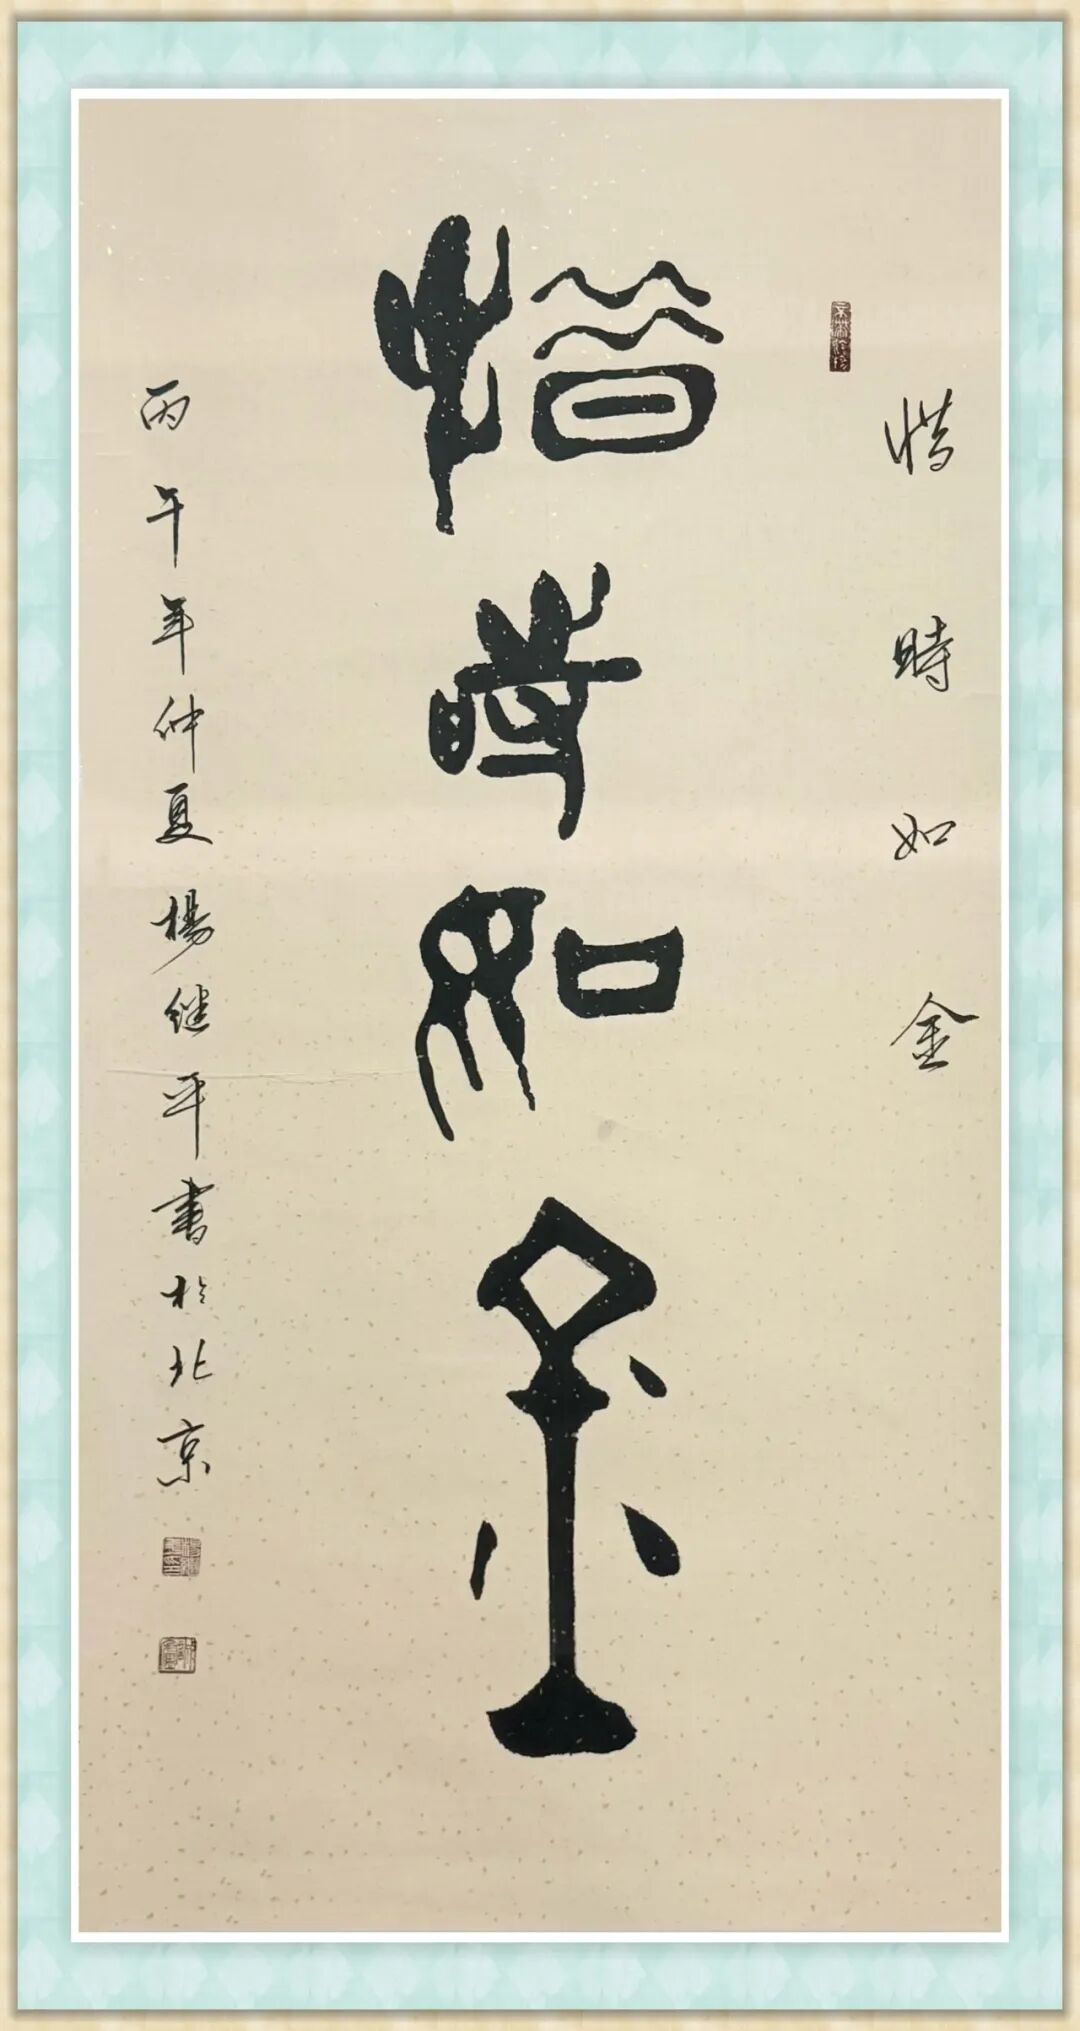 惜時如金
惜時如金
丙午年仲夏楊继平書於北京